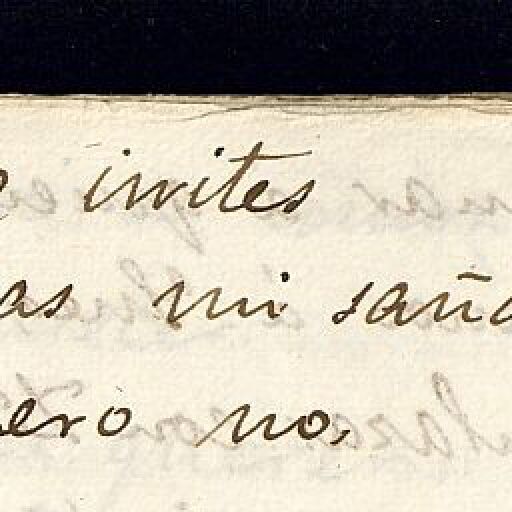 irrites
as mi saña
ero no,